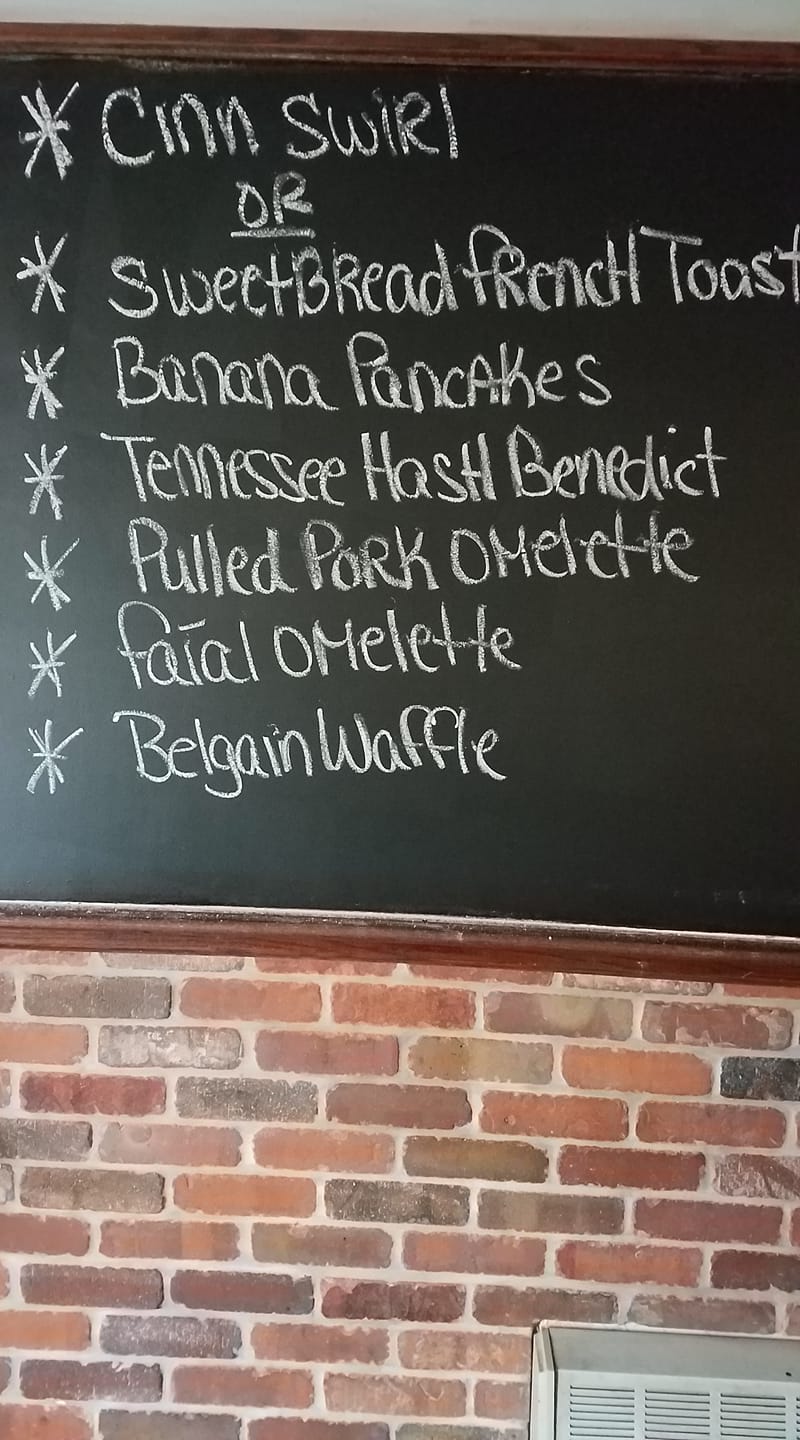 * Cinn Swirl
OR
* SweetBread french Toast
* Banana Pancakes
* Tennessee Hash Benedict
* Pulled Pork Omelette
* faial Omelette
* Belgain Waffle